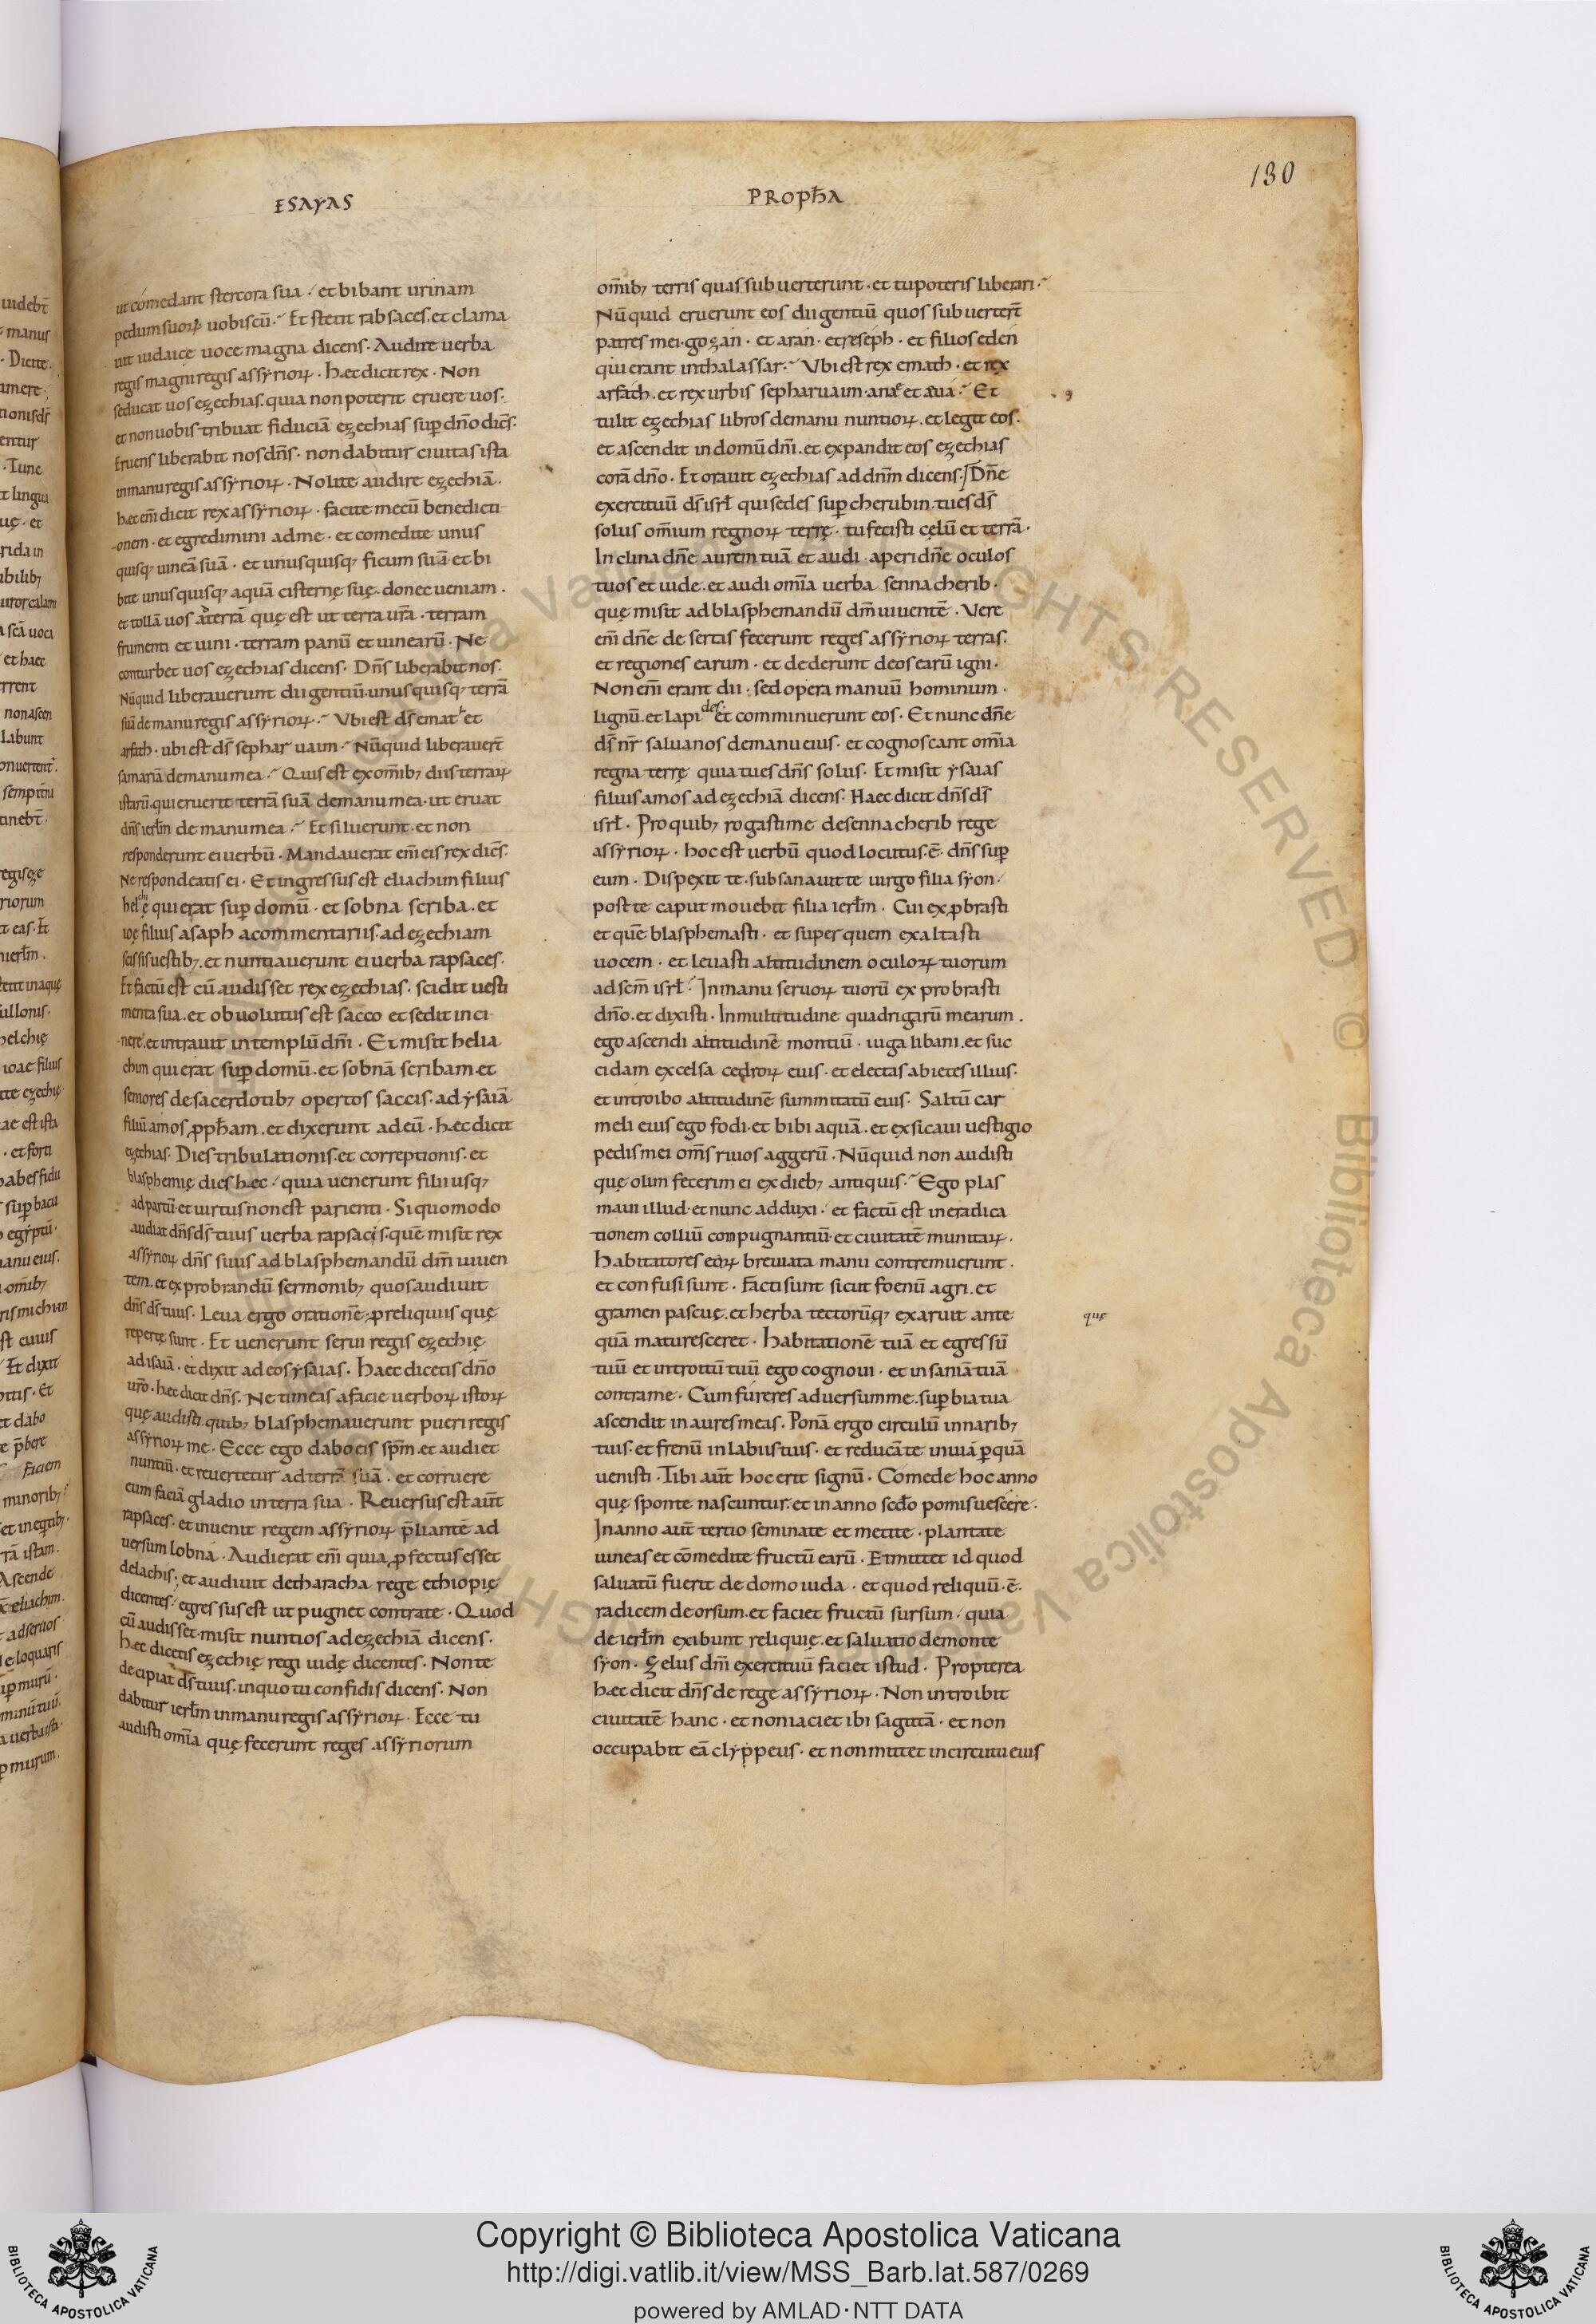 130
ESAYAS
PROPħA
ut comedant stercora sua ·́ et bibant urinam
pedum suoꝝ uobiscū ·~ Et stetit rabsaces. et clama
uit iudaicę uoce magna dicens · Audite uerba
regis magni regis assyrioꝝ · hæc dicit rex · Non
seducat uos ezechias. quia non poterit eruere uos ·
et non uobis tribuat fiduciā ezechias suꝑ dn̄o dicēs ·
Eruens liberabit nos dn̄s · non dabitur ciuitas ista
in manu regis assyrioꝝ · Nolite audire ezechiā ·
hæc em̄ dicit rex assyrioꝝ · facite mecū benedicti
onem · et egredimini ad me · et comedite unus
quisq; uineā suā · et unusquisq; ficum suā · et bi
bite unusquisq; aquā cisternę suę · donec ueniam ·
et tollā uos a terrā quę est ut terra ur̄a · terram
frumenti et uini · terram panū et uinearū · Ne
conturbet uos ezechias dicens · Dn̄s liberabit nos ·
Nūquid liberauerunt dii gentiū · unusquisq; terrā
suā de manu regis assyrioꝝ ·~ Vbi est ds̄ emath et
arfath · ubi est ds̄ sepharuaim ·~ Nūquid liberauert̄
samariā de manu mea ·~ Quis est ex om̄ib; diis terraꝝ
istarū. qui eruerit terrā suā de manu mea · ut eruat
dn̄s ierłm de manu mea ·~ Et siluerunt · et non
responderunt ei uerbū · Mandauerat em̄ eis rex dicēs ·
Ne respondeatis ei · Et ingressus est eliachim filius
helchię qui erat suꝑ domū · et sobna scriba · et
ioę filius asaph a commentariis · ad ezechiam
scissis uestib; · et nuntiauerunt ei uerba rapsaces ·
Et factū est cū audisset rex ezechias · scidit uesti
menta sua · et obuolutus est sacco et sedit in ci
nere · et intrauit in templū dn̄i · Et misit helia
chim qui erat suꝑ domū · et sobnā scribam · et
seniores de sacerdotib; opertos saccis · ad ysaiā
filiū amos ꝓpħam · et dixerunt ad eū · hæc dicit
ezechias · Dies tribulationis · et correptionis · et
blasphemię dies hęc ·́ quia uenerunt filii usq;
ad partū · et uirtus non est parienti · Si quomodo
audiat dn̄s ds̄ tuus uerba rapsacis · quē misit rex
assyrioꝝ dn̄s suus ad blasphemandū dm̄ uiuen
tem · et exprobrandū sermonib; quos audiuit
dn̄s ds̄ tuus · Leua ergo orationē ꝓ reliquiis quę
repertę sunt · Et uenerunt serui regis ezechię
ad isaiā · et dixit ad eos ysaias · Haec dicetis dn̄o
ur̄o · hæc dicit dn̄s · Ne timeas a facie uerboꝝ istoꝝ
quę audisti. quib; blasphemauerunt pueri regis
assyrioꝝ me · Ecce ego dabo eis spm̄ · et audiet
nuntiū · et reuertetur ad terrā suā · et corruere
eum faciā gladio in terra sua · Reuersus est aut̄
rapsaces · et inuenit regem assyrioꝝ p̄liantē ad
uersum lobna · Audierat em̄ quia ꝓfectus esset
de lachis ; et audiuit de tharacha rege ethiopię
dicentes ·́ egressus est ut pugnet contra te · Quod
cū audisset · misit nuntios ad ezechiā dicens ·
Hæc dicetis ezechię regi iudę dicentes · Non te
decipiat ds̄ tuus · in quo tu confidis dicens · Non
dabitur ierłm in manu regis assyrioꝝ · Ecce tu
audisti om̄ia quę fecerunt reges assyriorum
om̄ib; terris quas subuerterunt · et tu poteris liberari ·~
Nūquid eruerunt eos dii gentiū quos subuertert̄
patres mei · gozan · et aran · et reseph · et filios eden
qui erant in thalassar ·~ Vbi est rex emath · et rex
arfath · et rex urbis sepharuaim · ana et aua ·~ Et
tulit ezechias libros de manu nuntioꝝ · et legit eos ·
et ascendit in domū dn̄i · et expandit eos ezechias
corā dn̄o · Et orauit ezechias ad dnm̄ dicens · Dn̄e
exercituū ds̄ isrł qui sedes suꝑ cherubin · tu es ds̄
solus om̄ium regnoꝝ terrę · tu fecisti cęlū et terrā ·
Inclina dn̄e aurem tuā et audi · aperi dn̄e oculos
tuos et uide · et audi om̄ia uerba sennacherib ·
quę misit ad blasphemandū dm̄ uiuentē · Vere
em̄ dn̄e desertas fecerunt reges assyrioꝝ terras ·
et regiones earum · et dederunt deos earū igni ·
Non em̄ erant dii · sed opera manuū hominum ·
lignū · et lapides et comminuerunt eos · Et nunc dn̄e
ds̄ nr̄ salua nos de manu eius · et cognoscant om̄ia
regna terrę quia tu es dn̄s solus · Et misit ysaias
filius amos ad ezechiā dicens · Haec dicit dn̄s ds̄
isrł · Pro quib; rogasti me de sennacherib rege
assyrioꝝ · hoc est uerbū quod locutus · ē · dn̄s suꝑ
eum · Dispexit te · subsanauit te uirgo filia syon ·
post te caput mouebit filia ierłm · Cui exꝓbrasti
et quē blasphemasti · et super quem exaltasti
uocem · et leuasti altitudinem oculoꝝ tuorum
ad scm̄ isrł ·~ In manu seruoꝝ tuorū exprobrasti
dn̄o · et dixisti · In multitudine quadrigarū mearum ·
ego ascendi altitudinē montiū · iuga libani · et suc
cidam excelsa cedroꝝ eius · et electas abietes illius ·
et introibo altitudinē summitatū eius · Saltū car
meli eius ego fodi · et bibi aquā · et exsicaui uestigio
pedis mei om̄s riuos aggerū · Nūquid non audisti
quę olim fecerim ei ex dieb; antiquis ·~ Ego plas
maui illud · et nunc adduxi · et factū est in eradica
tionem colliū compugnantiū · et ciuitatē munitaꝝ ·
Habitatores eoꝝ breuiata manu contremuerunt ·
et confusi sunt · Facti sunt sicut foenū agri · et
gramen pascuę · et herba tectorūq; exaruit ante
quę
quā maturesceret · Habitationē tuā et egressū
tuū et introitū tuū ego cognoui · et insaniā tuā
contra me · Cum fureres aduersum me · suꝑbia tua
ascendit in aures meas · Ponā ergo circulū in narib;
tuis · et frenū in labiis tuis · et reducā te in uiā ꝑ quā
uenisti · Tibi aut̄ hoc erit signū · Comede hoc anno
quę sponte nascuntur · et in anno scdo pomis uescere ·
In anno aut̄ tertio seminate et metite · plantate
uineas et cōmedite fructū earū · Et mittet id quod
saluatū fuerit de domo iuda · et quod reliquū · ē ·
radicem deorsum · et faciet fructū sursum ·́ quia
de ierłm exibunt reliquię · et saluatio de monte
syon · Zelus dm̄ exercituū faciet istud · Propterea
hæc dicit dn̄s de rege assyrioꝝ · Non introibit
ciuitatē hanc · et non iaciet ibi sagittā · et non
occupabit eā clyppeus · et non mittet in circuitu eius
Copyright © Biblioteca Apostolica Vaticana
http://digi.vatlib.it/view/MSS_Barb.lat.587/0269
powered by AMLAD·NTT DATA